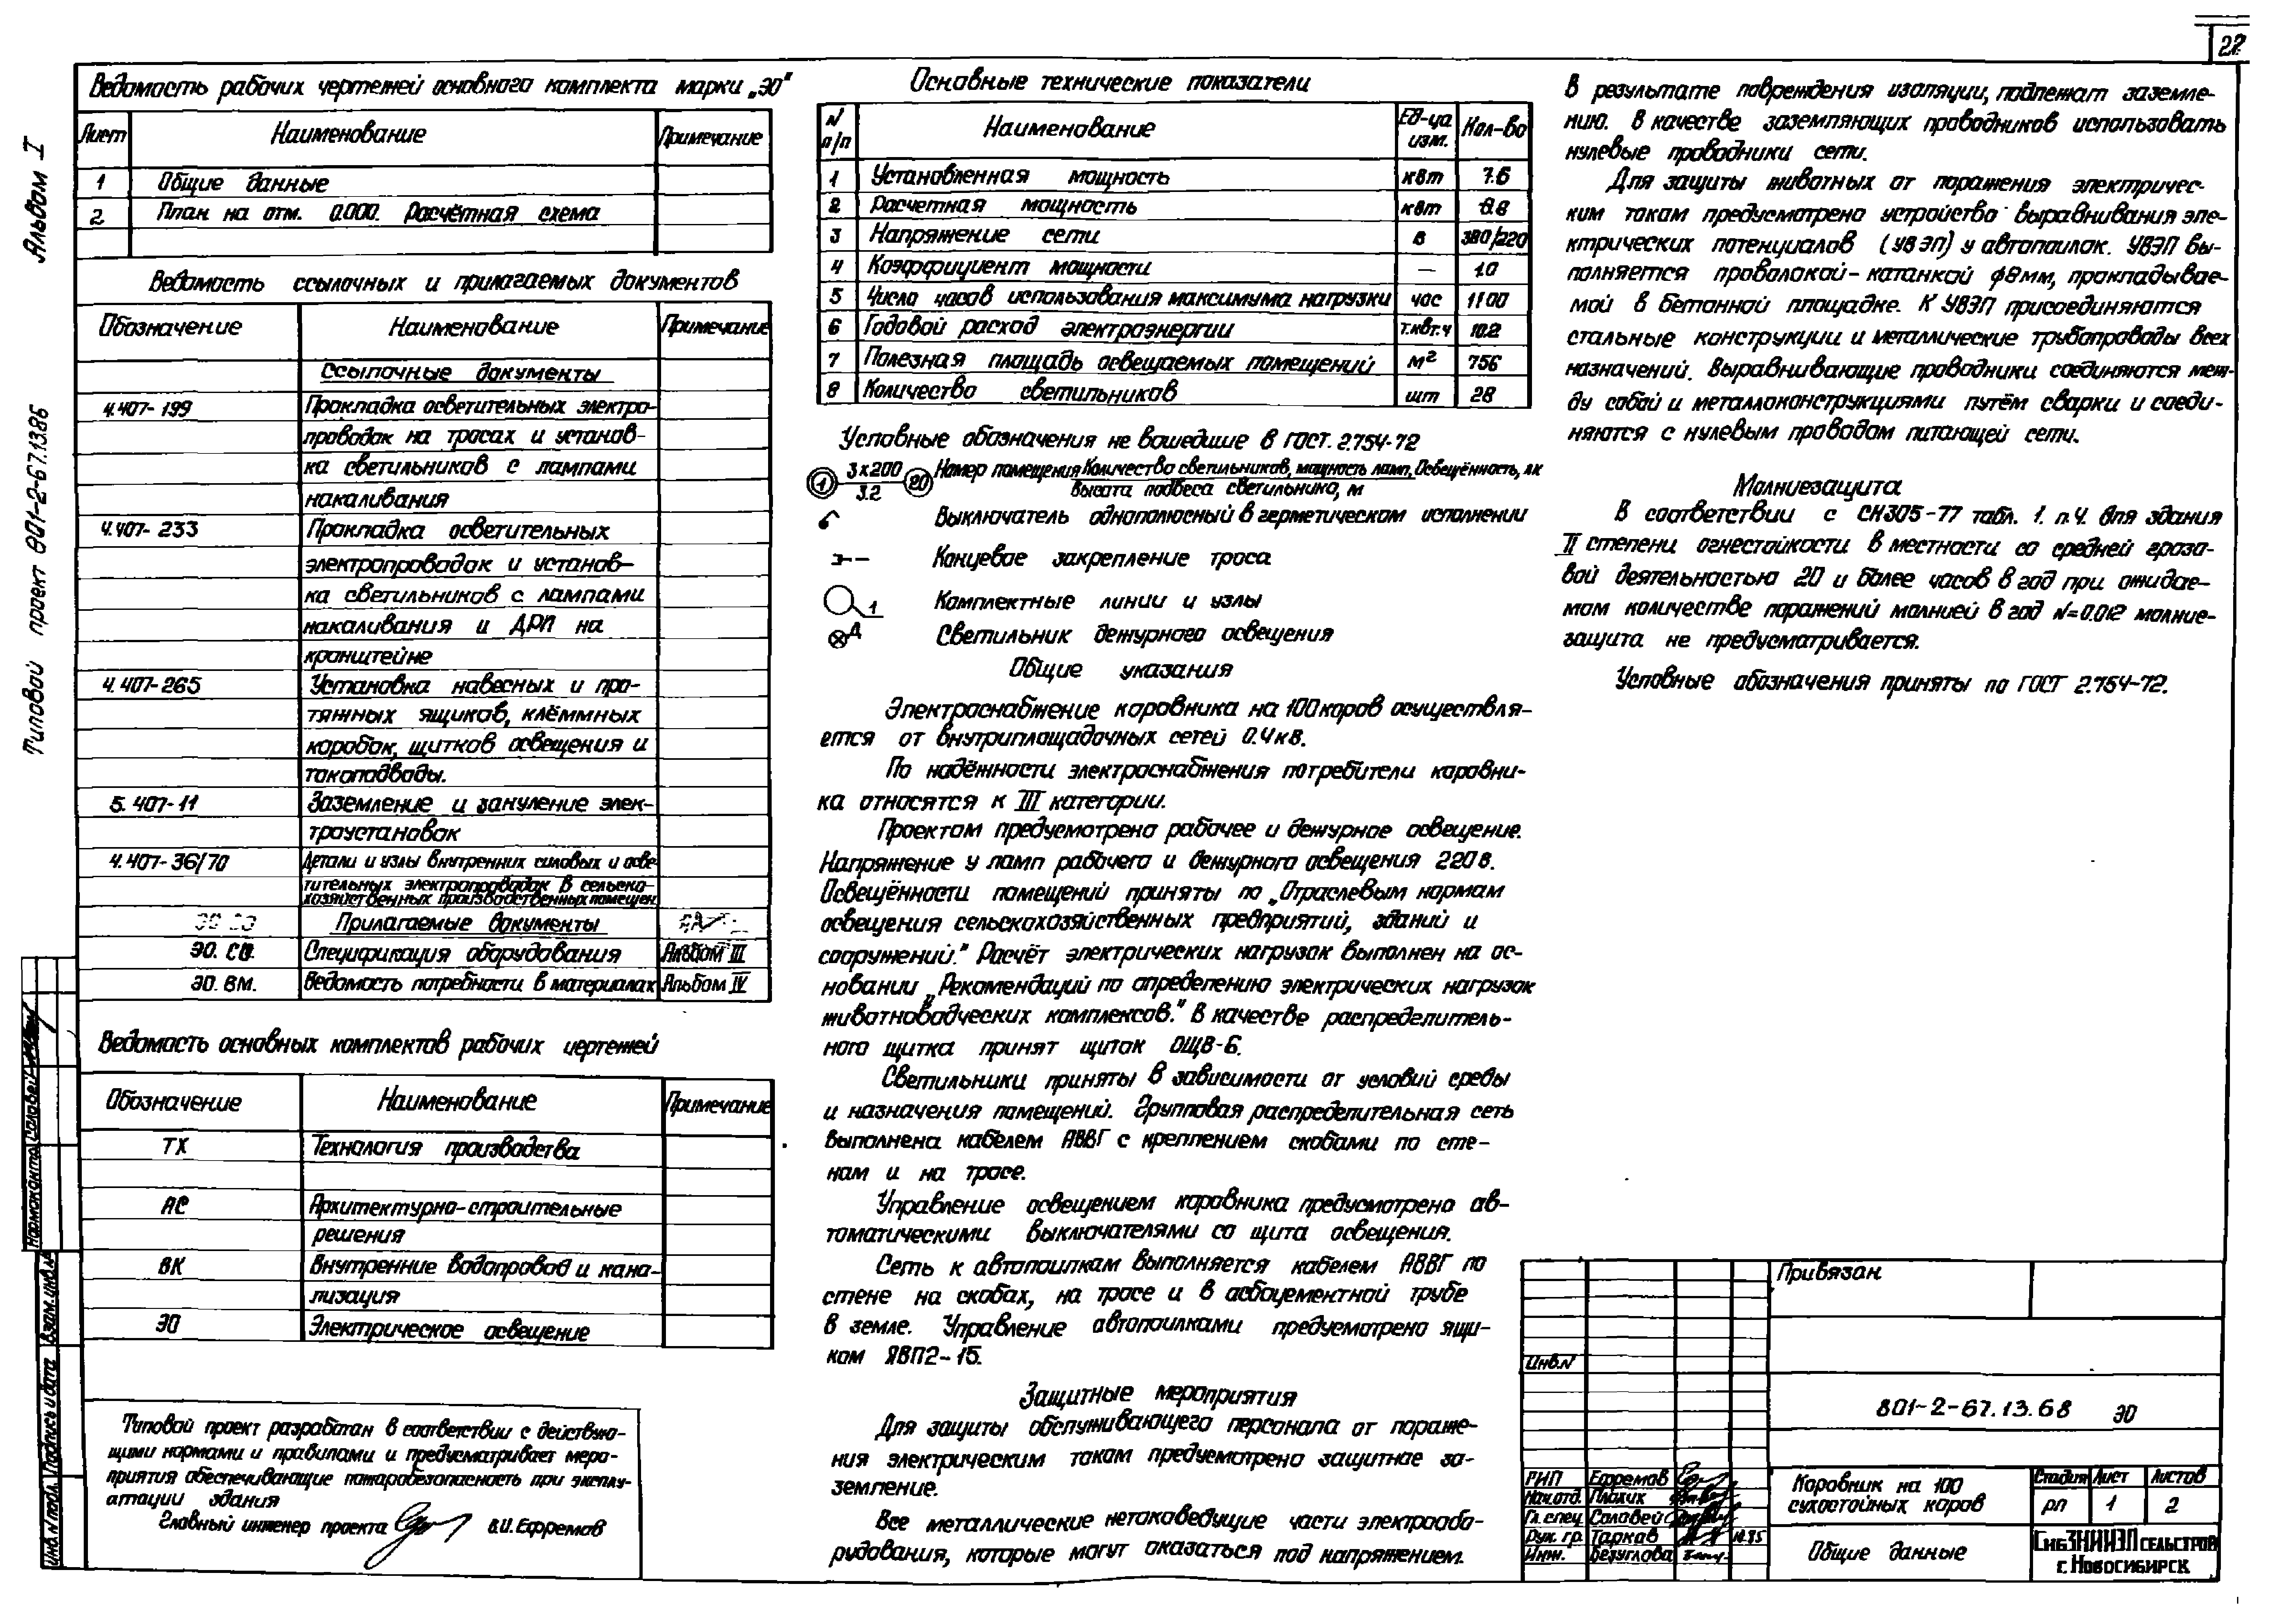 22
Альбом I
Типовой проект 801-2-67.13.86
Ведомость рабочих чертежей основного комплекта марки „ЭО"
Лист Наименование Примечание
1 Общие данные
2 План на отм. 0.000. Расчётная схема
Ведомость ссылочных и прилагаемых документов
Обозначение Наименование Примечание
Ссылочные документы
4.407-199 Прокладка осветительных электро-
проводок на тросах и установ-
ка светильников с лампами
накаливания
4.407-233 Прокладка осветительных
электропроводок и установ-
ка светильников с лампами
накаливания и ДРЛ на
кронштейне
4.407-265 Установка навесных и про-
тяжных ящиков, клёммных
коробок, щитков освещения и
токоподводы.
5.407-11 Заземление и зануление элек-
троустановок
4.407-36/70 Детали и узлы внутренних силовых и осве-
тительных электропроводок в сельско-
хозяйственных производственных помещен.
Прилагаемые документы
ЭО. СО. Спецификация оборудования Альбом III
ЭО. ВМ. Ведомость потребности в материалах Альбом IV
Ведомость основных комплектов рабочих чертежей
Обозначение Наименование Примечание
ТХ Технология производства
АС Архитектурно-строительные
решения
ВК Внутренние водопровод и кана-
лизация
ЭО Электрическое освещение
Типовой проект разработан в соответствии с действую-
щими нормами и правилами и предусматривает меро-
приятия обеспечивающие пожаробезопасность при эксплу-
атации здания
Главный инженер проекта В.И. Ефремов
Основные технические показатели
N п/п Наименование Ед-ца изм. Кол-во
1 Установленная мощность квт 7.6
2 Расчетная мощность квт
3 Напряжение сети в 380/220
4 Коэффициент мощности — 1.0
5 Число часов использования максимума нагрузки час 1100
6 Годовой расход электроэнергии т.квт.ч 10.2
7 Полезная площадь освещаемых помещений м² 756
8 Количество светильников шт 28
Условные обозначения не вошедшие в ГОСТ. 2.754-72
1 3х200 20 Номер помещения Количество светильников, мощность ламп, Освещённость, лк
3.2 Высота подвеса светильника, м
Выключатель однополюсный в герметическом исполнении
Концевое закрепление троса
1 Комплектные линии и узлы
Д Светильник дежурного освещения
Общие указания
Электроснабжение коровника на 100 коров осуществля-
ется от внутриплощадочных сетей 0.4 кв.
По надёжности электроснабжения потребители коровни-
ка относятся к III категории.
Проектом предусмотрено рабочее и дежурное освещение.
Напряжение у ламп рабочего и дежурного освещения 220 в.
Освещённости помещений приняты по „Отраслевым нормам
освещения сельскохозяйственных предприятий, зданий и
сооружений." Расчёт электрических нагрузок выполнен на ос-
новании „Рекомендаций по определению электрических нагрузок
животноводческих комплексов." В качестве распределитель-
ного щитка принят щиток ОЩВ-6.
Светильники приняты в зависимости от условий среды
и назначения помещений. Групповая распределительная сеть
выполнена кабелем АВВГ с креплением скобами по сте-
нам и на тросе.
Управление освещением коровника предусмотрено ав-
томатическими выключателями со щита освещения.
Сеть к автопоилкам выполняется кабелем АВВГ по
стене на скобах, на тросе и в асбоцементной трубе
в земле. Управление автопоилками предусмотрено ящи-
ком ЯВП2-15.
Защитные мероприятия
Для защиты обслуживающего персонала от пораже-
ния электрическим током предусмотрено защитное за-
земление.
Все металлические нетоковедущие части электрообо-
рудования, которые могут оказаться под напряжением.
в результате повреждения изоляции, подлежат заземле-
нию. В качестве заземляющих проводников использовать
нулевые проводники сети.
Для защиты животных от поражения электричес-
ким током предусмотрено устройство выравнивания эле-
ктрических потенциалов (УВЭП) у автопоилок. УВЭП вы-
полняется проволокой-катанкой ф8мм, прокладывае-
мой в бетонной площадке. К УВЭП присоединяются
стальные конструкции и металлические трубопроводы всех
назначений. Выравнивающие проводники соединяются меж-
ду собой и металлоконструкциями путём сварки и соеди-
няются с нулевым проводом питающей сети.
Молниезащита
В соответствии с СН305-77 табл. 1. п.4. для здания
II степени огнестойкости в местности со средней грозо-
вой деятельностью 20 и более часов в год при ожидае-
мом количестве поражений молнией в год N=0.012 молние-
защита не предусматривается.
Условные обозначения приняты по ГОСТ 2.754-72.
Нормоконтр. Соловей
Взам. инв. N
Подпись и дата
Инв. N подл.
Привязан
Инв. N
801-2-67.13.68 ЭО
ГИП Ефремов
Нач. отд. Плохих
Гл. спец Соловей
Рук. гр. Тарков 10.85
Инж. Безуглова
Коровник на 100
сухостойных коров
Стадия Лист Листов
рп 1 2
Общие данные
СибЗНИИЭПсельстрой
г. Новосибирск